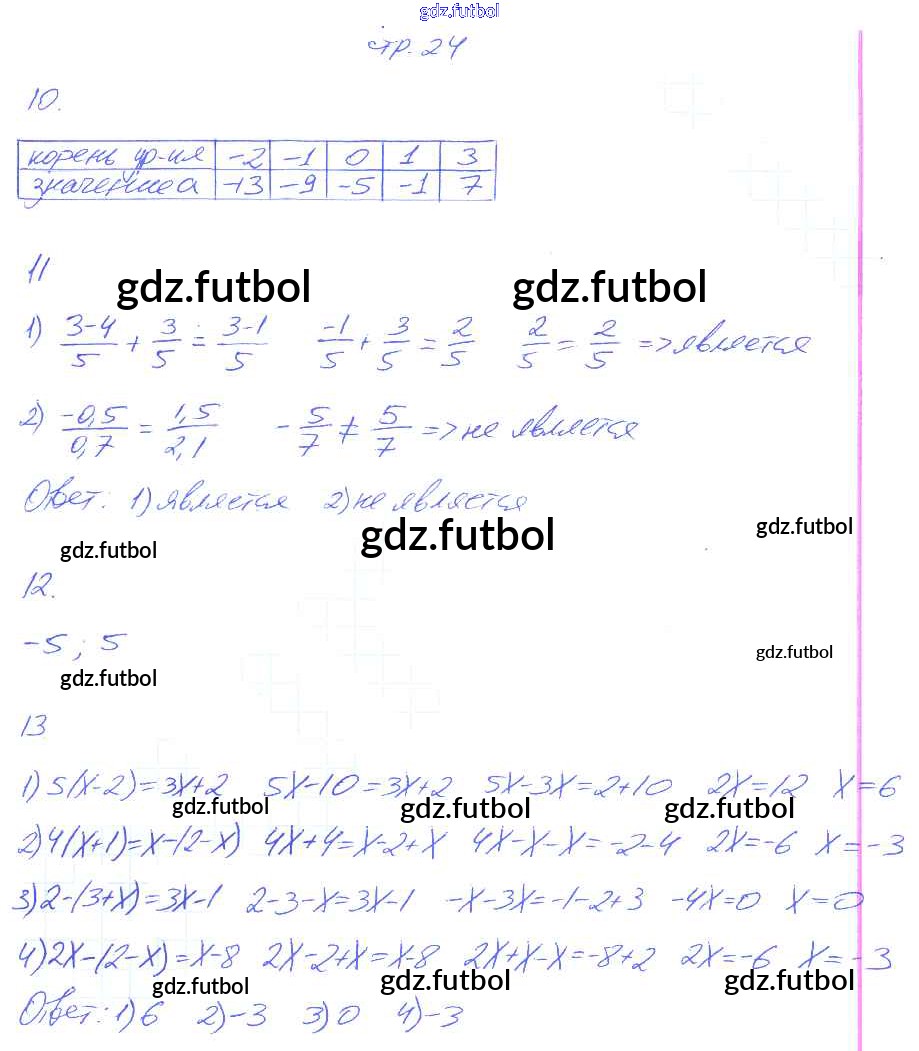 gdz.futbol
стр. 24
10.
корень ур-ия -2 -1 0 1 3
значение a -13 -9 -5 -1 7
11
gdz.futbol gdz.futbol
1) 3-4/5 + 3/5 = 3-1/5 -1/5 + 3/5 = 2/5 2/5 = 2/5 => является
2) -0,5/0,7 = 1,5/2,1 -5/7 ≠ 5/7 => не является
Ответ: 1) является 2) не является
gdz.futbol gdz.futbol gdz.futbol
12.
-5 ; 5
gdz.futbol gdz.futbol
13
1) 5(x-2)=3x+2 5x-10=3x+2 5x-3x=2+10 2x=12 x=6
gdz.futbol gdz.futbol gdz.futbol
2) 4(x+1)=x-(2-x) 4x+4=x-2+x 4x-x-x=-2-4 2x=-6 x=-3
3) 2-(3+x)=3x-1 2-3-x=3x-1 -x-3x=-1-2+3 -4x=0 x=0
4) 2x-(2-x)=x-8 2x-2+x=x-8 2x+x-x=-8+2 2x=-6 x=-3
gdz.futbol gdz.futbol gdz.futbol
Ответ: 1) 6 2) -3 3) 0 4) -3